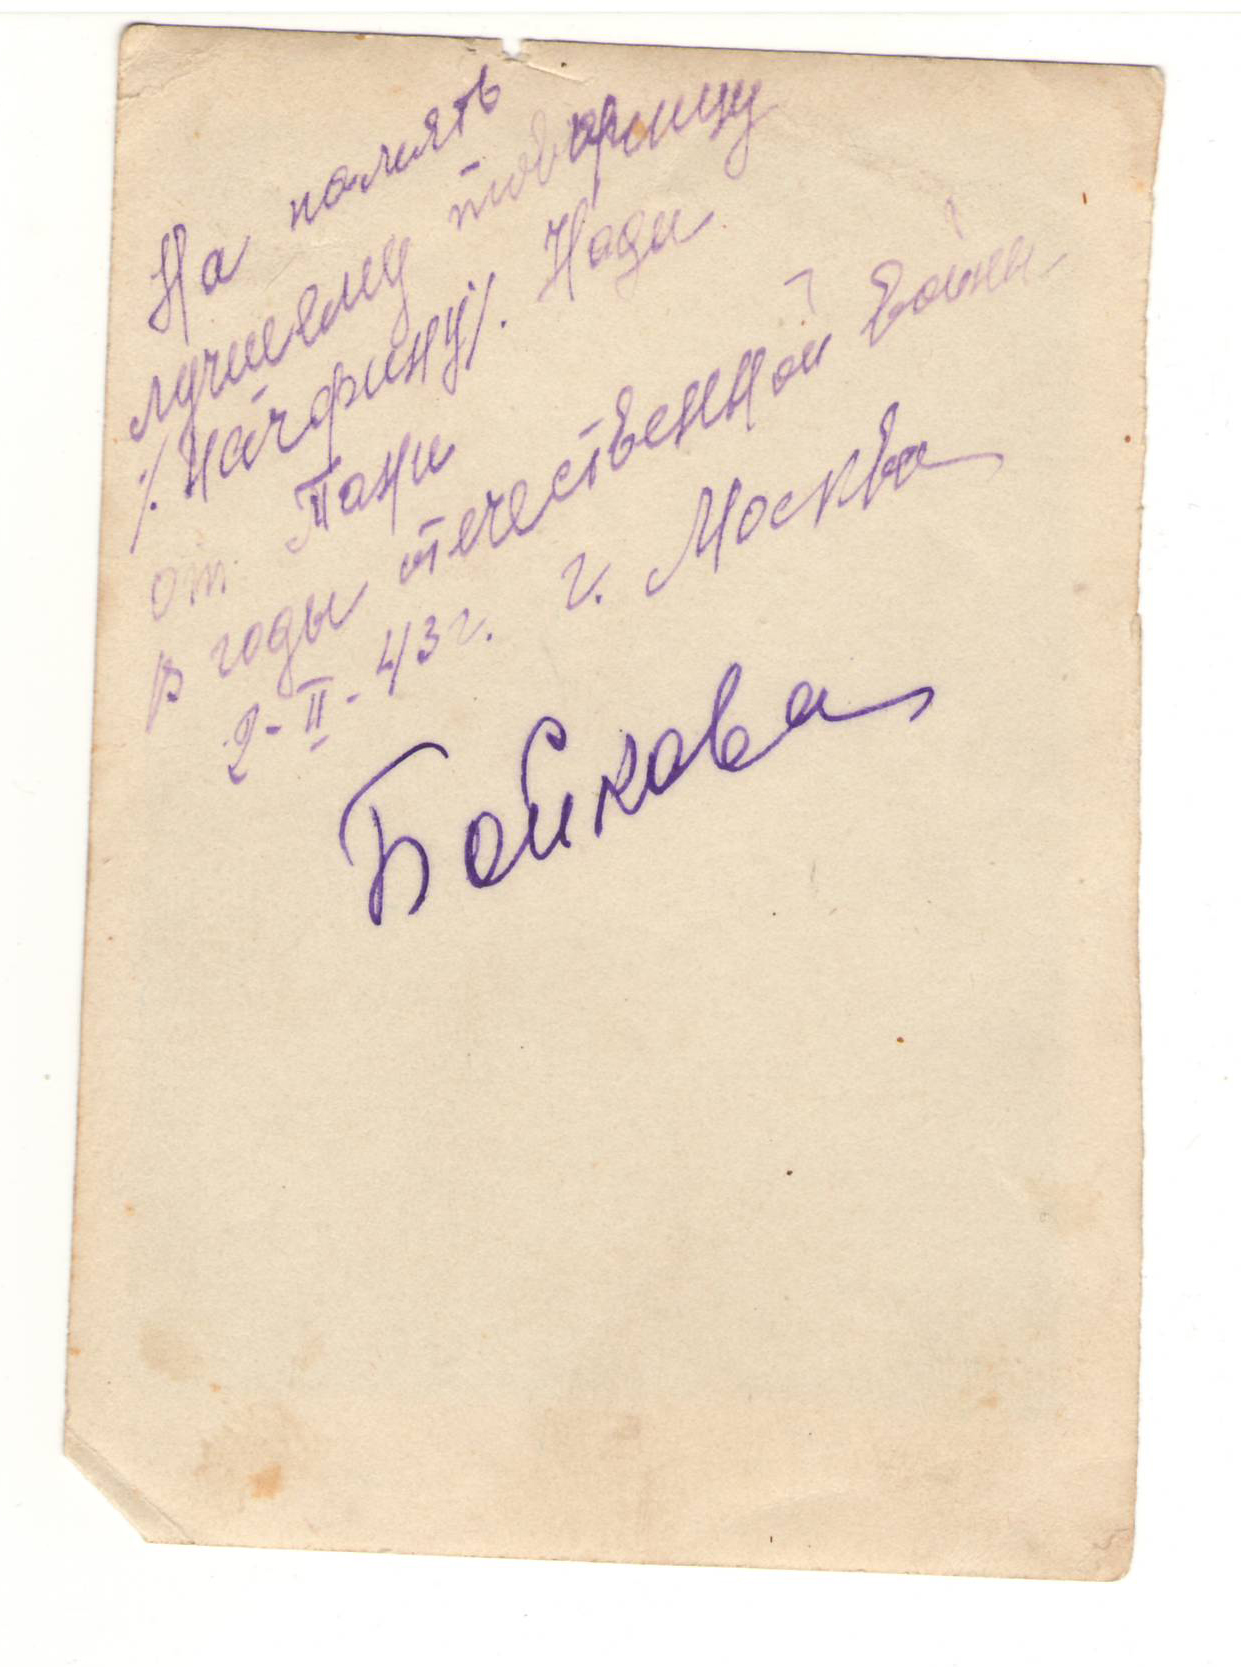 На память
лучшему товарищу
/. Начфину/. Нади
от Тани
в годы отечественной войны
2-II-43г. г. Москва
Бойкова